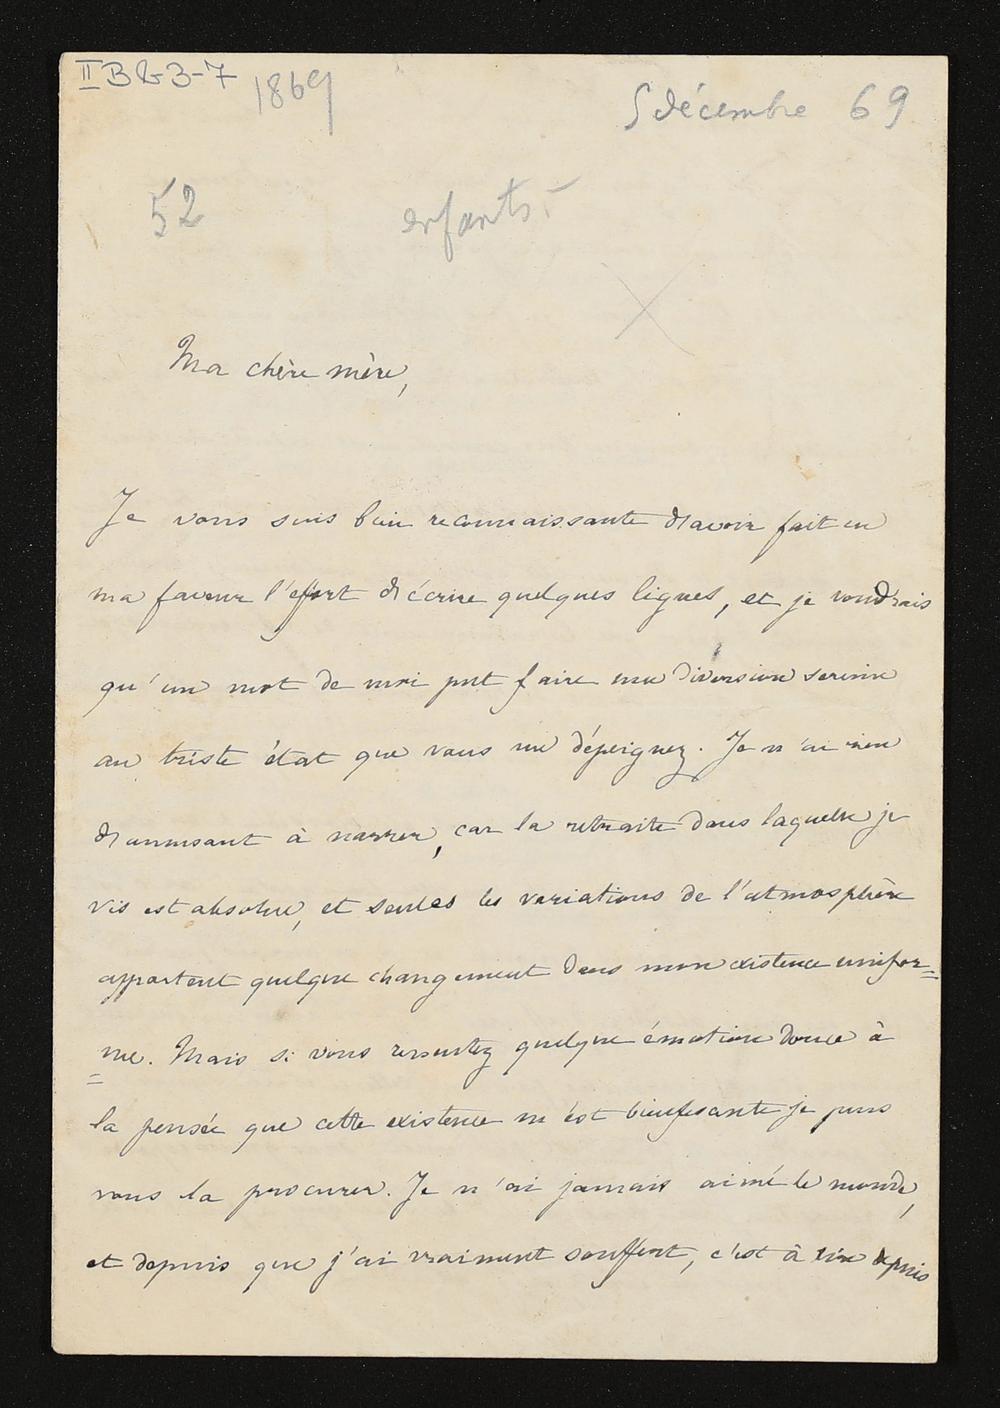 II B 2-3-7
1869
5 décembre 69
52
enfants.
Ma chère mère,
Je vous suis bien reconnaissante d'avoir fait en
ma faveur l'effort d'écrire quelques lignes, et je voudrais
qu'un mot de moi put faire une diversion sereine
au triste état que vous me dépeignez. Je n'ai rien
d'amusant à narrer, car la retraite dans laquelle je
vis est absolue, et seules les variations de l'atmosphère
apportent quelque changement dans mon existence unifor=
=me. Mais si vous ressentez quelque émotion douce à
la pensée que cette existence m'est bienfesante je puis
vous la procurer. Je n'ai jamais aimé le monde,
et depuis que j'ai vraiment souffert, c'est à dire depuis